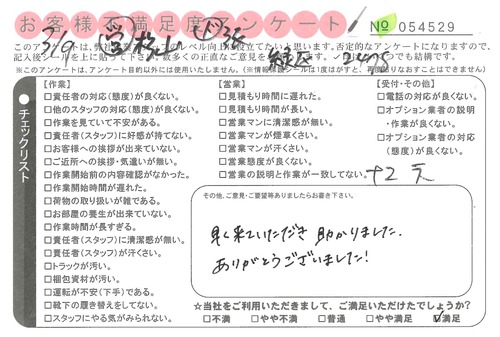 お客様不満足度アンケート
№ 054529
このアンケートは、弊社
のレベル向上に役立てたいと思います。否定的なアンケートになりますので、
記入後シールを上に貼って下さい。数多くの正直なご意見を
つでも結構です。
(※このアンケートは、アンケート目的以外には使用いたしません。(※情報保護シールは1度はがすと、再度貼りなおすことはできません)
3/9
緑区
2475
チェックリスト
【作業】
□責任者の対応(態度)が良くない。
□他のスタッフの対応(態度)が良くない。
□作業を見ていて不安がある。
□責任者(スタッフ)に好感が持てない。
□お客様への挨拶が出来ていない。
□ご近所への挨拶・気遣いが無い。
□作業開始前の内容確認がなかった。
□作業開始時間が遅れた。
□荷物の取り扱いが雑である。
□お部屋の養生が出来ていない。
□作業時間が長すぎる。
□責任者(スタッフ)に清潔感が無い。
□責任者(スタッフ)が汗くさい。
□トラックが汚い。
□梱包資材が汚い。
□運転が不安(下手)である。
□靴下の履き替えをしてない。
□スタッフにやる気がみられない。
【営業】
□見積もり時間に遅れた。
□見積もり時間が長い。
□営業マンに清潔感が無い。
□営業マンが煙草くさい。
□営業マンが汗くさい。
□営業態度が良くない。
□営業の説明と作業が一致してない。
【受付・その他】
□電話の対応が良くない。
□オプション業者の説明
・作業が良くない。
□オプション業者の対応
(態度)が良くない。
その他、ご意見・ご要望等ありましたらお書き下さい。
早く来ていただき 助かりました。
ありがとうございました!
☆当社をご利用いただきまして、ご満足いただけたでしょうか?
□不満 □やや不満 □普通 □やや満足 ☑満足